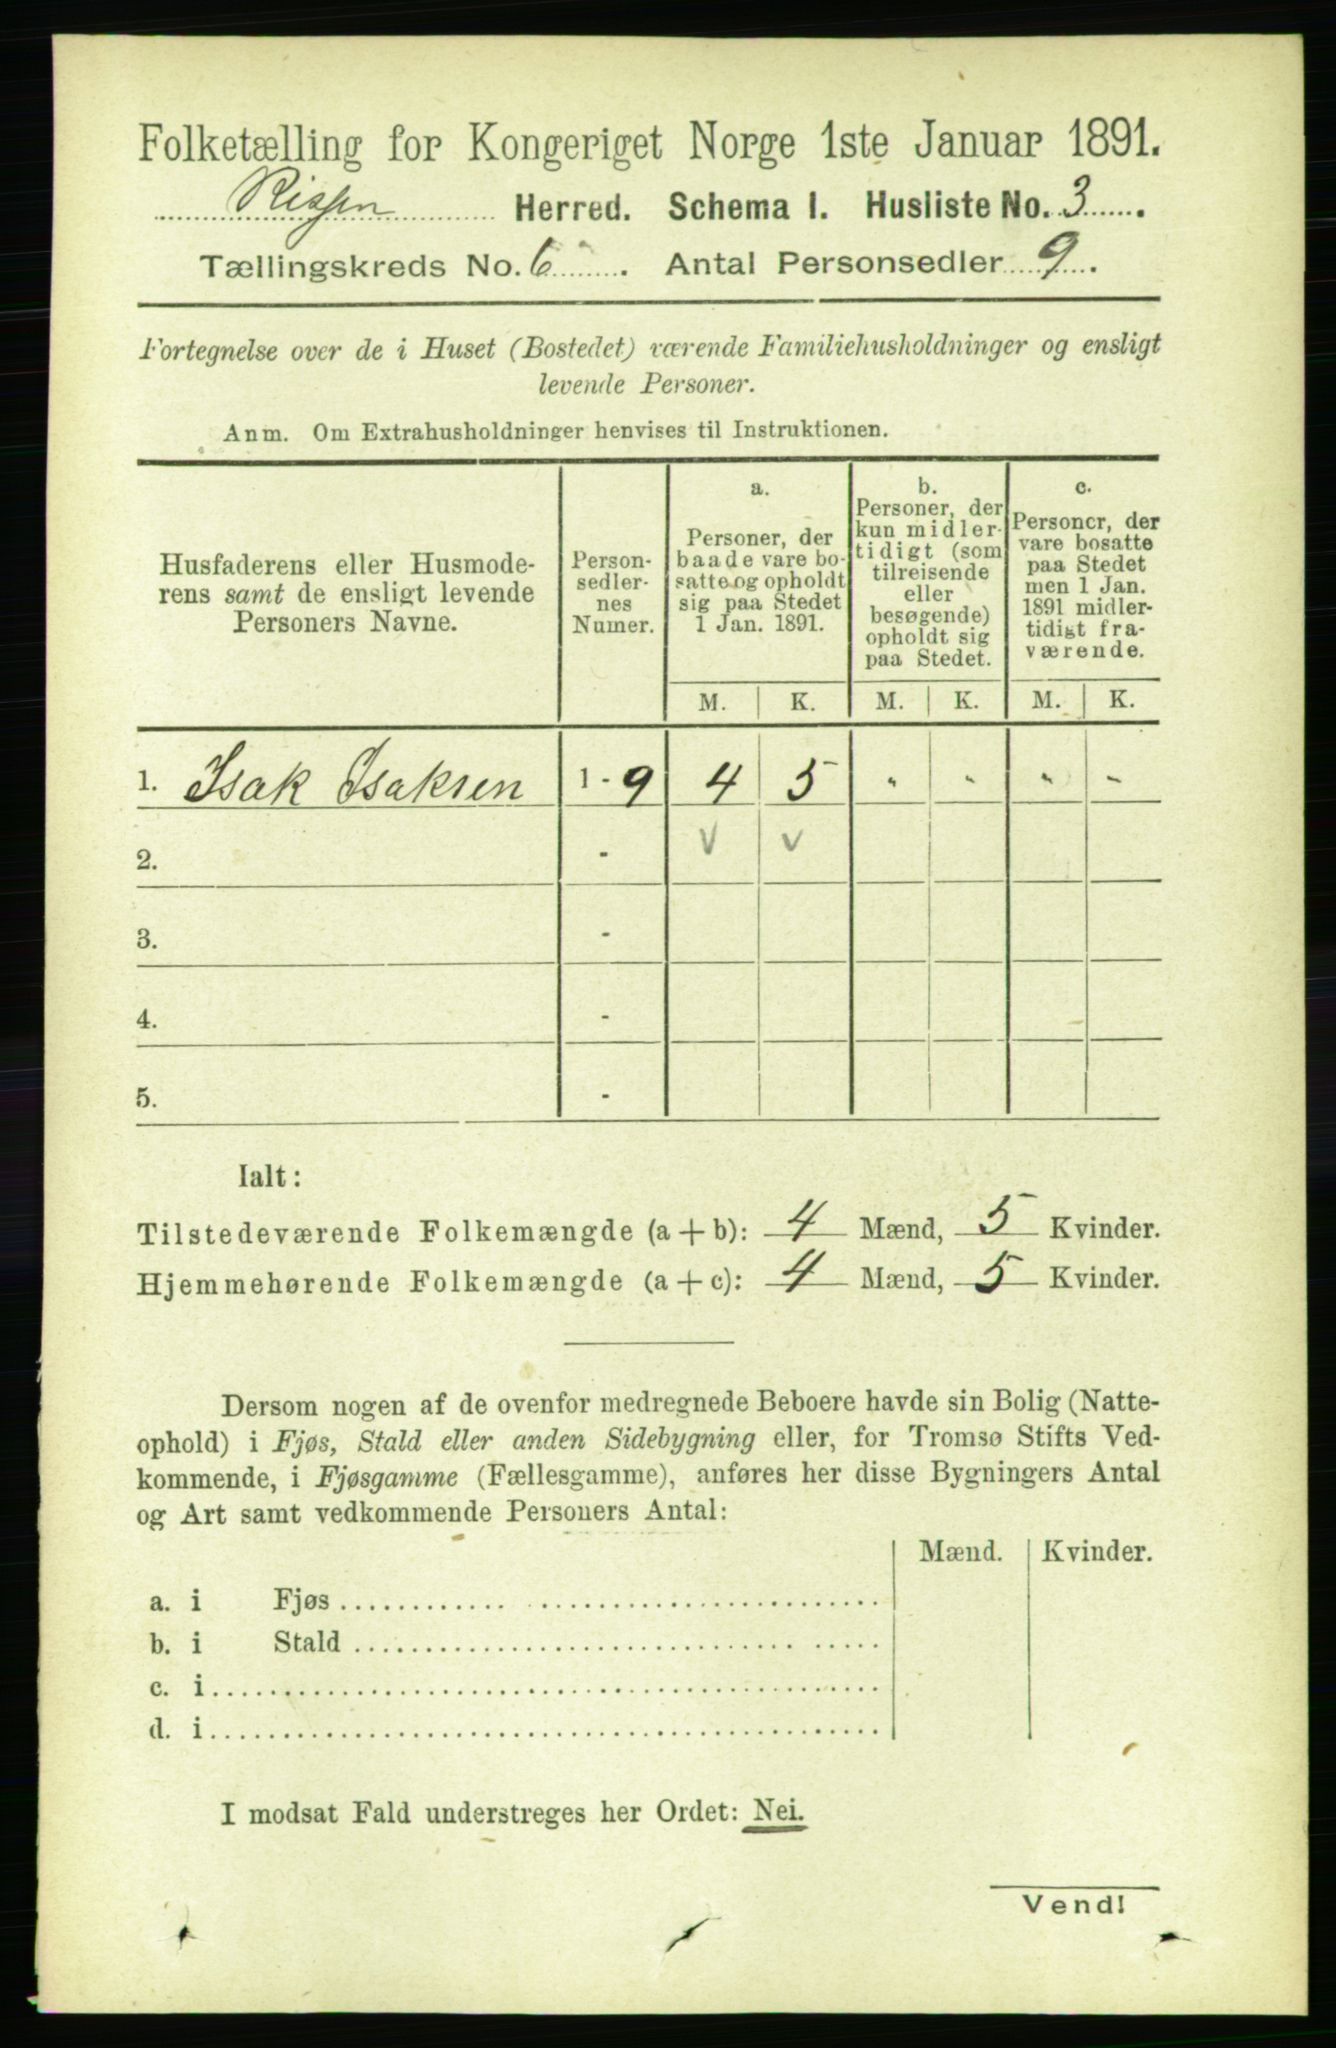 Folketælling for Kongeriget Norge 1ste Januar 1891.
Rissen Herred. Schema I. Husliste No. 3.
Tællingskreds No. 6. Antal Personsedler 9.
Fortegnelse over de i Huset (Bostedet) værende Familiehusholdninger og ensligt
levende Personer.
Anm. Om Extrahusholdninger henvises til Instruktionen.
Husfaderens eller Husmode-
rens samt de ensligt levende
Personers Navne.
Person-
sedler-
nes
Numer.
a.
Personer, der
baade vare bo-
satte og opholdt
sig paa Stedet
1 Jan. 1891.
b.
Personer, der
kun midler-
tidigt (som
tilreisende
eller
besøgende)
opholdt sig
paa Stedet.
c.
Personer, der
vare bosatte
paa Stedet
men 1 Jan.
1891 midler-
tidigt fra-
værende.
M. K. M. K. M. K.
1. Isak Isaksen 1 - 9 4 5 " " " "
2. - v v
3. -
4. -
5. -
Ialt:
Tilstedeværende Folkemængde (a + b): 4 Mænd, 5 Kvinder.
Hjemmehørende Folkemængde (a + c): 4 Mænd, 5 Kvinder.
Dersom nogen af de ovenfor medregnede Beboere havde sin Bolig (Natte-
ophold) i Fjøs, Stald eller anden Sidebygning eller, for Tromsø Stifts Ved-
kommende, i Fjøsgamme (Fællesgamme), anføres her disse Bygningers Antal
og Art samt vedkommende Personers Antal:
Mænd. Kvinder.
a. i Fjøs
b. i Stald
c. i
d. i
I modsat Fald understreges her Ordet: Nei.
Vend!